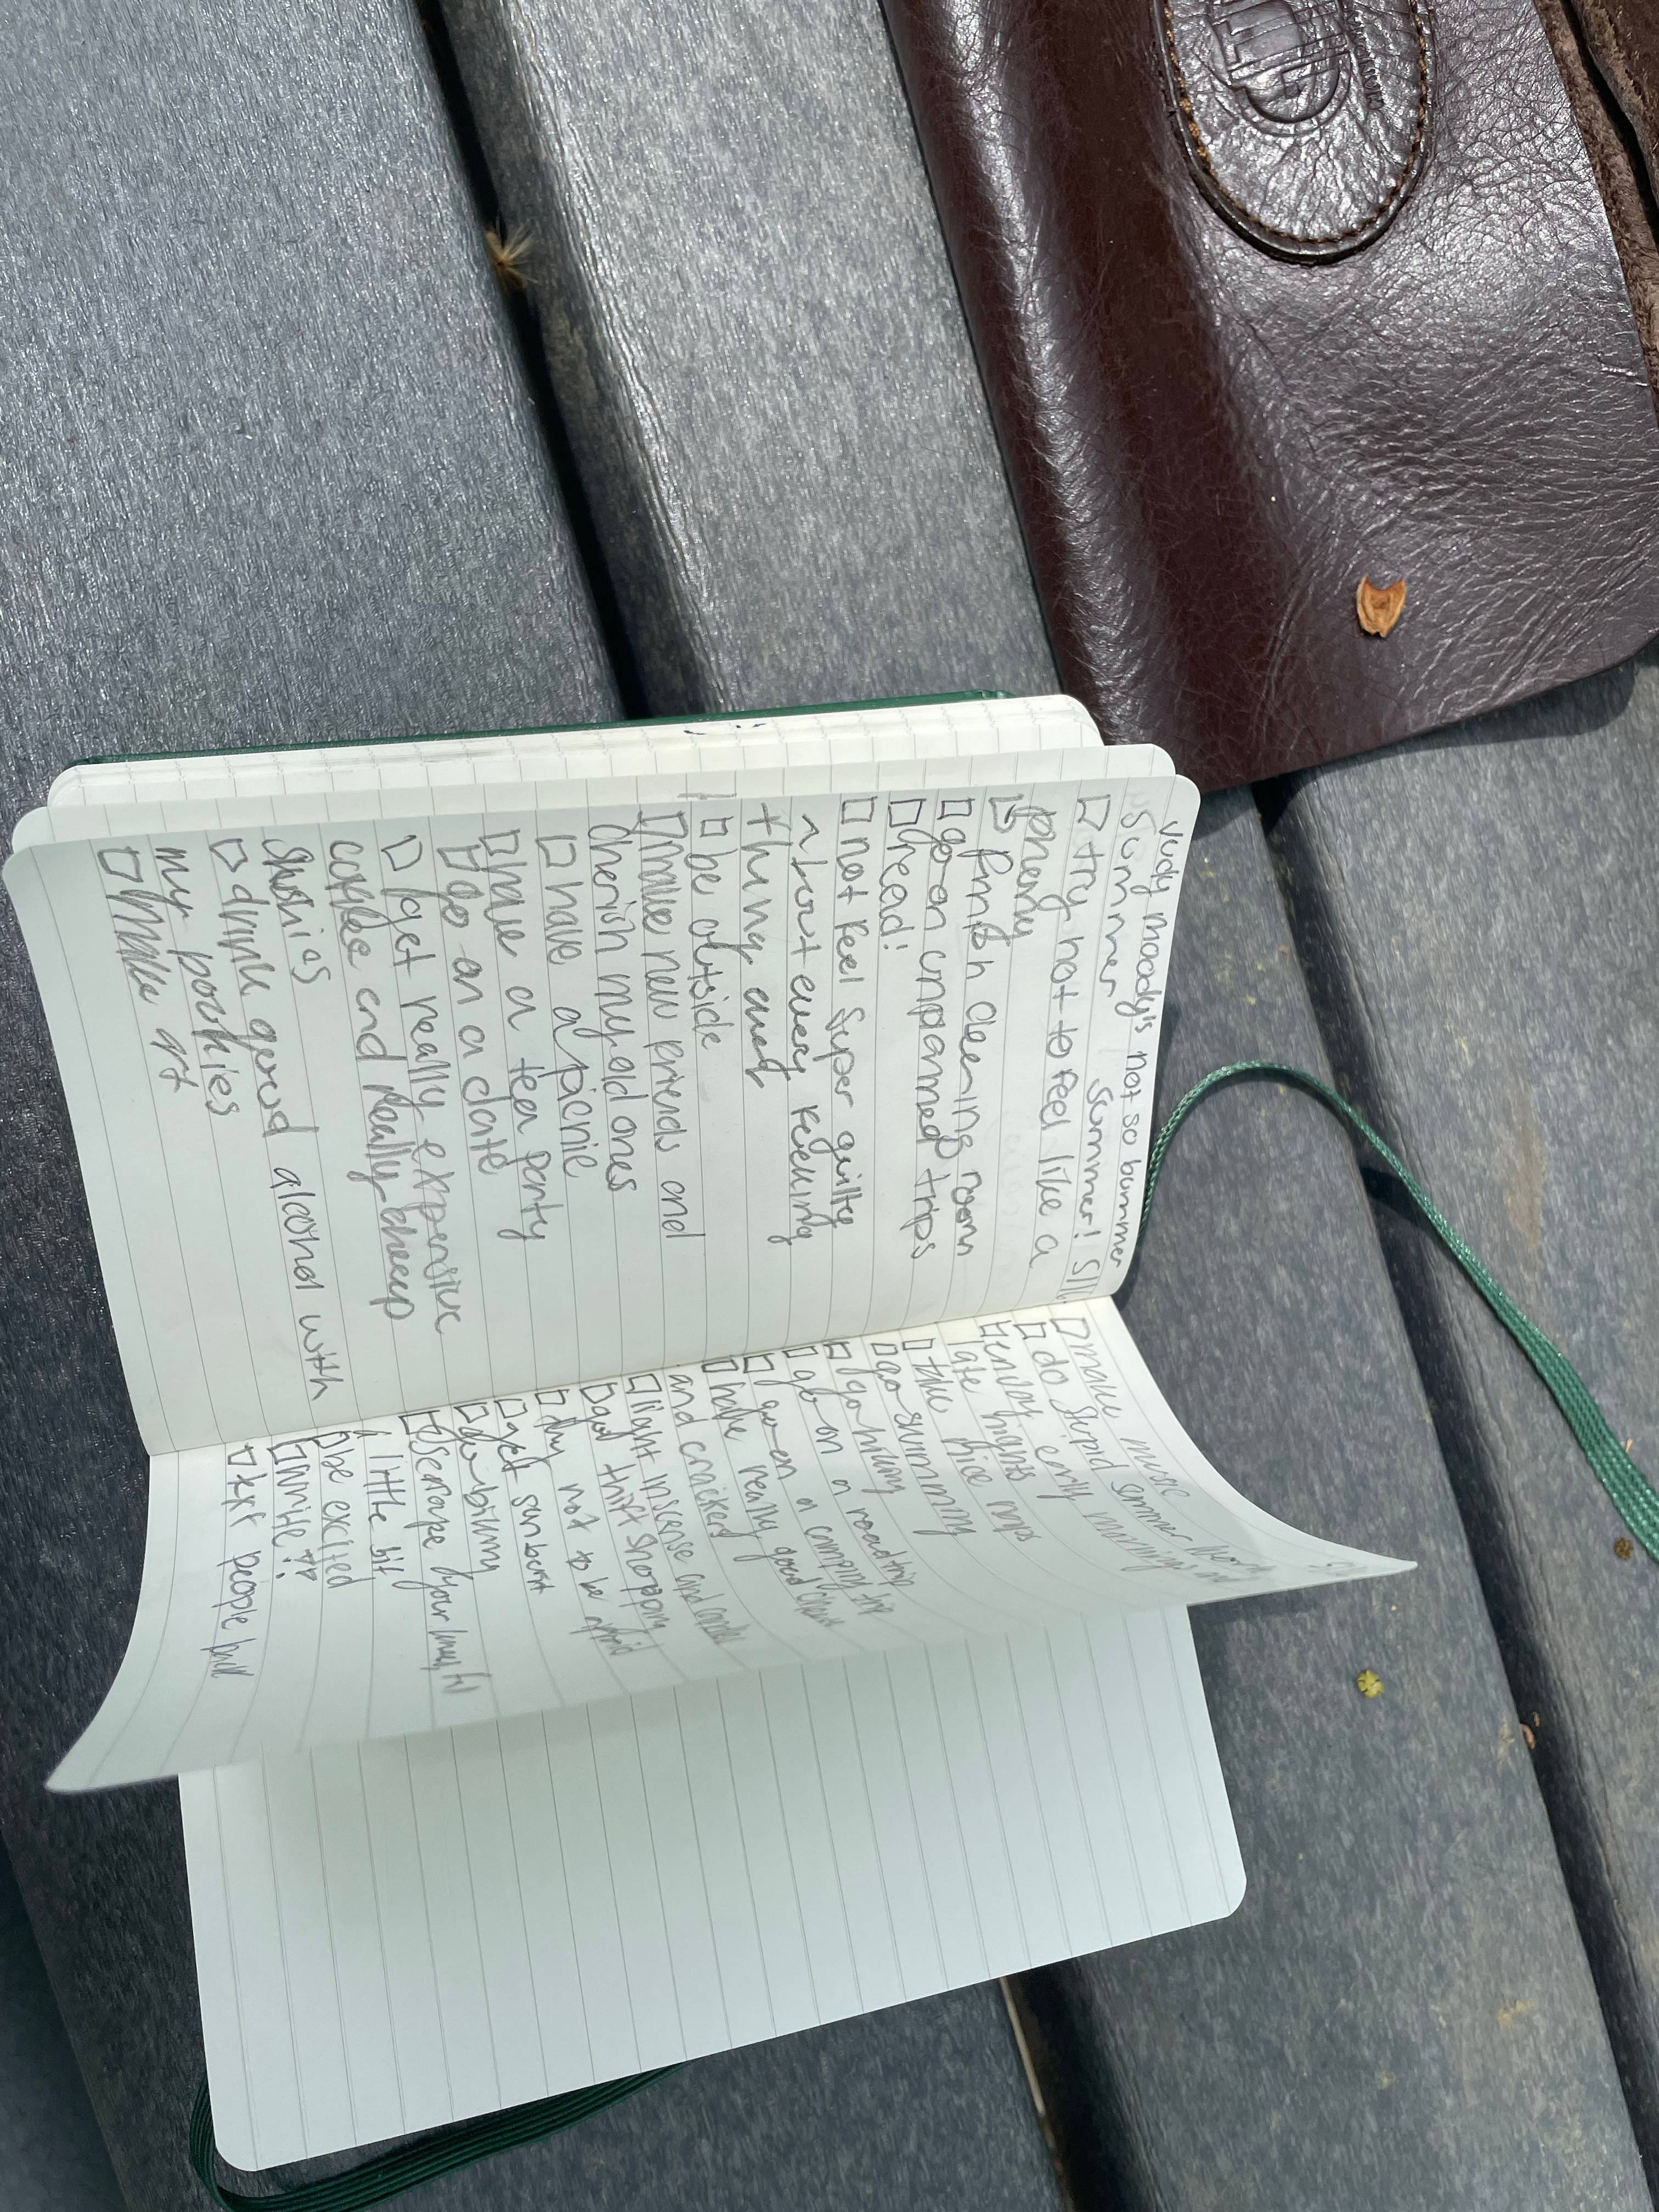 Judy moody's not so bummer
Summer Summer!
□ try not to feel like a
phony
□ finish cleaning room
□ go on unplanned trips
□ read!
□ not feel super guilty
about every
thing and
□ be outside
□ make new friends and
cherish my old ones
□ have a picnic
□ have a tea party
□ go on a date
□ get really expensive
coffee and really cheap
slushies
□ drink good alcohol with
my pookies
□ make art
□ make music
□ do stupid summer
□ enjoy early mornings
late nights
□ take nice naps
□ go swimming
□ go hiking
□ go on a roadtrip
□ go on a camping trip
□ make really good
and crackers
□ light insense and
□ go thrift shopping
□ try not to be afraid
□ get sunburnt
□ go biking
□ teenage
a little bit
□ be excited
□ write!!
□ text people back